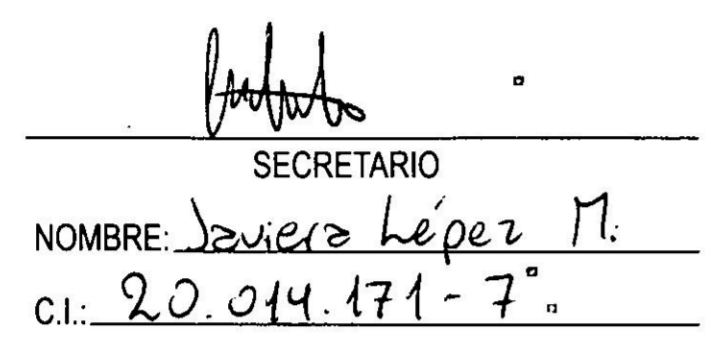 SECRETARIO
NOMBRE: Javiera López M.
C.I.: 20.014.171-7